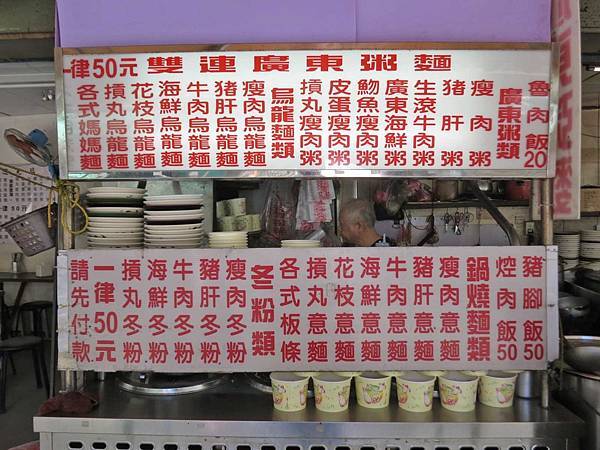 一律50元 雙連廣東粥麵
魯肉飯20
廣東粥類
瘦肉粥
豬肝粥
生滾牛肉粥
廣東海鮮粥
魩魚瘦肉粥
皮蛋瘦肉粥
摃丸瘦肉粥
烏龍麵類
瘦肉烏龍麵
豬肝烏龍麵
牛肉烏龍麵
海鮮烏龍麵
花枝烏龍麵
摃丸烏龍麵
各式媽媽麵
豬腳飯50
焢肉飯50
鍋燒麵類
瘦肉意麵
豬肝意麵
牛肉意麵
海鮮意麵
花枝意麵
摃丸意麵
各式板條
冬粉類
瘦肉冬粉
豬肝冬粉
牛肉冬粉
海鮮冬粉
摃丸冬粉
一律50元
請先付款